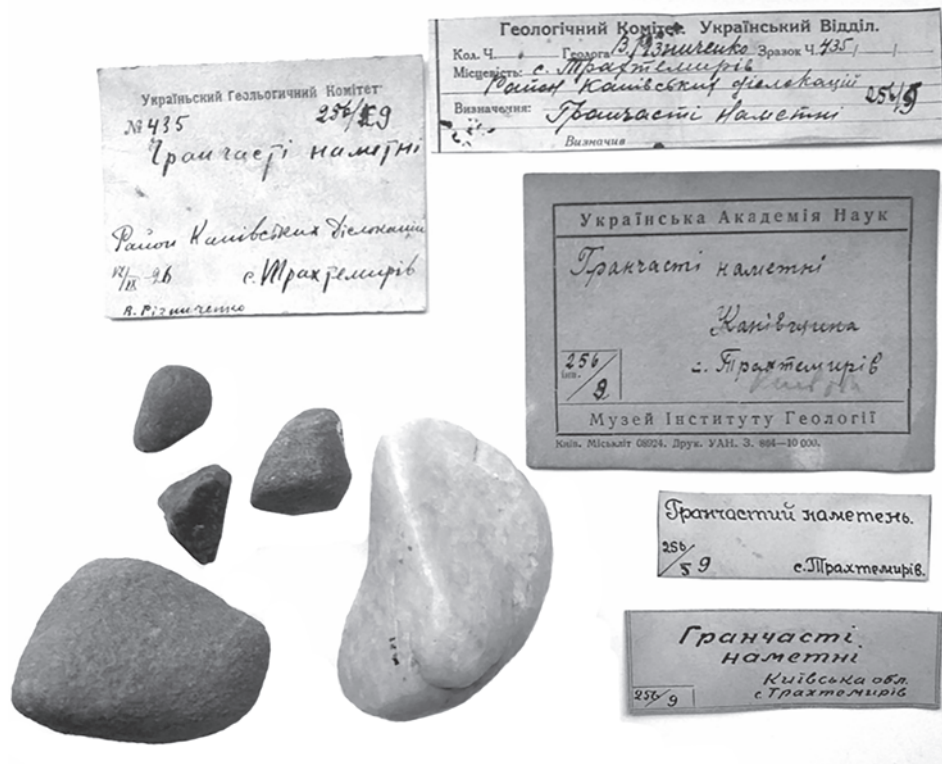 Украïнський Геольогичний Комітет
№ 435 256/59
Гранчасті наметні
Район Канівських Діслокацій
VI/IX 26 с. Трахтемирів
В. Різниченко
Геологічний Комітет. Український Відділ.
Кол. Ч. Геолога В. Різниченко Зразок Ч. 435/ /
Місцевість: с. Трахтемирів
Район Канівських діслокацій
Визначення: Гранчасті наметні 256/9
Визначив
Українська Академія Наук
Гранчасті наметні
Канівщина
с. Трахтемирів
256/9
інв.
Музей Інституту Геології
Київ. Міськліт 08924. Друк. УАН. З. 864—10 000.
Гранчастий наметень.
256/5 9 с. Трахтемирів.
Гранчасті
наметні
Київська обл.
256/9 с Трахтемирів